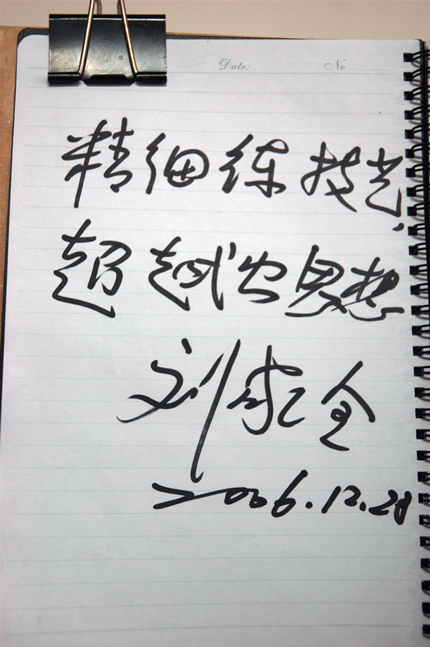 Date: No
精细练技艺,
超越出思想
刘 全
2006.12.28